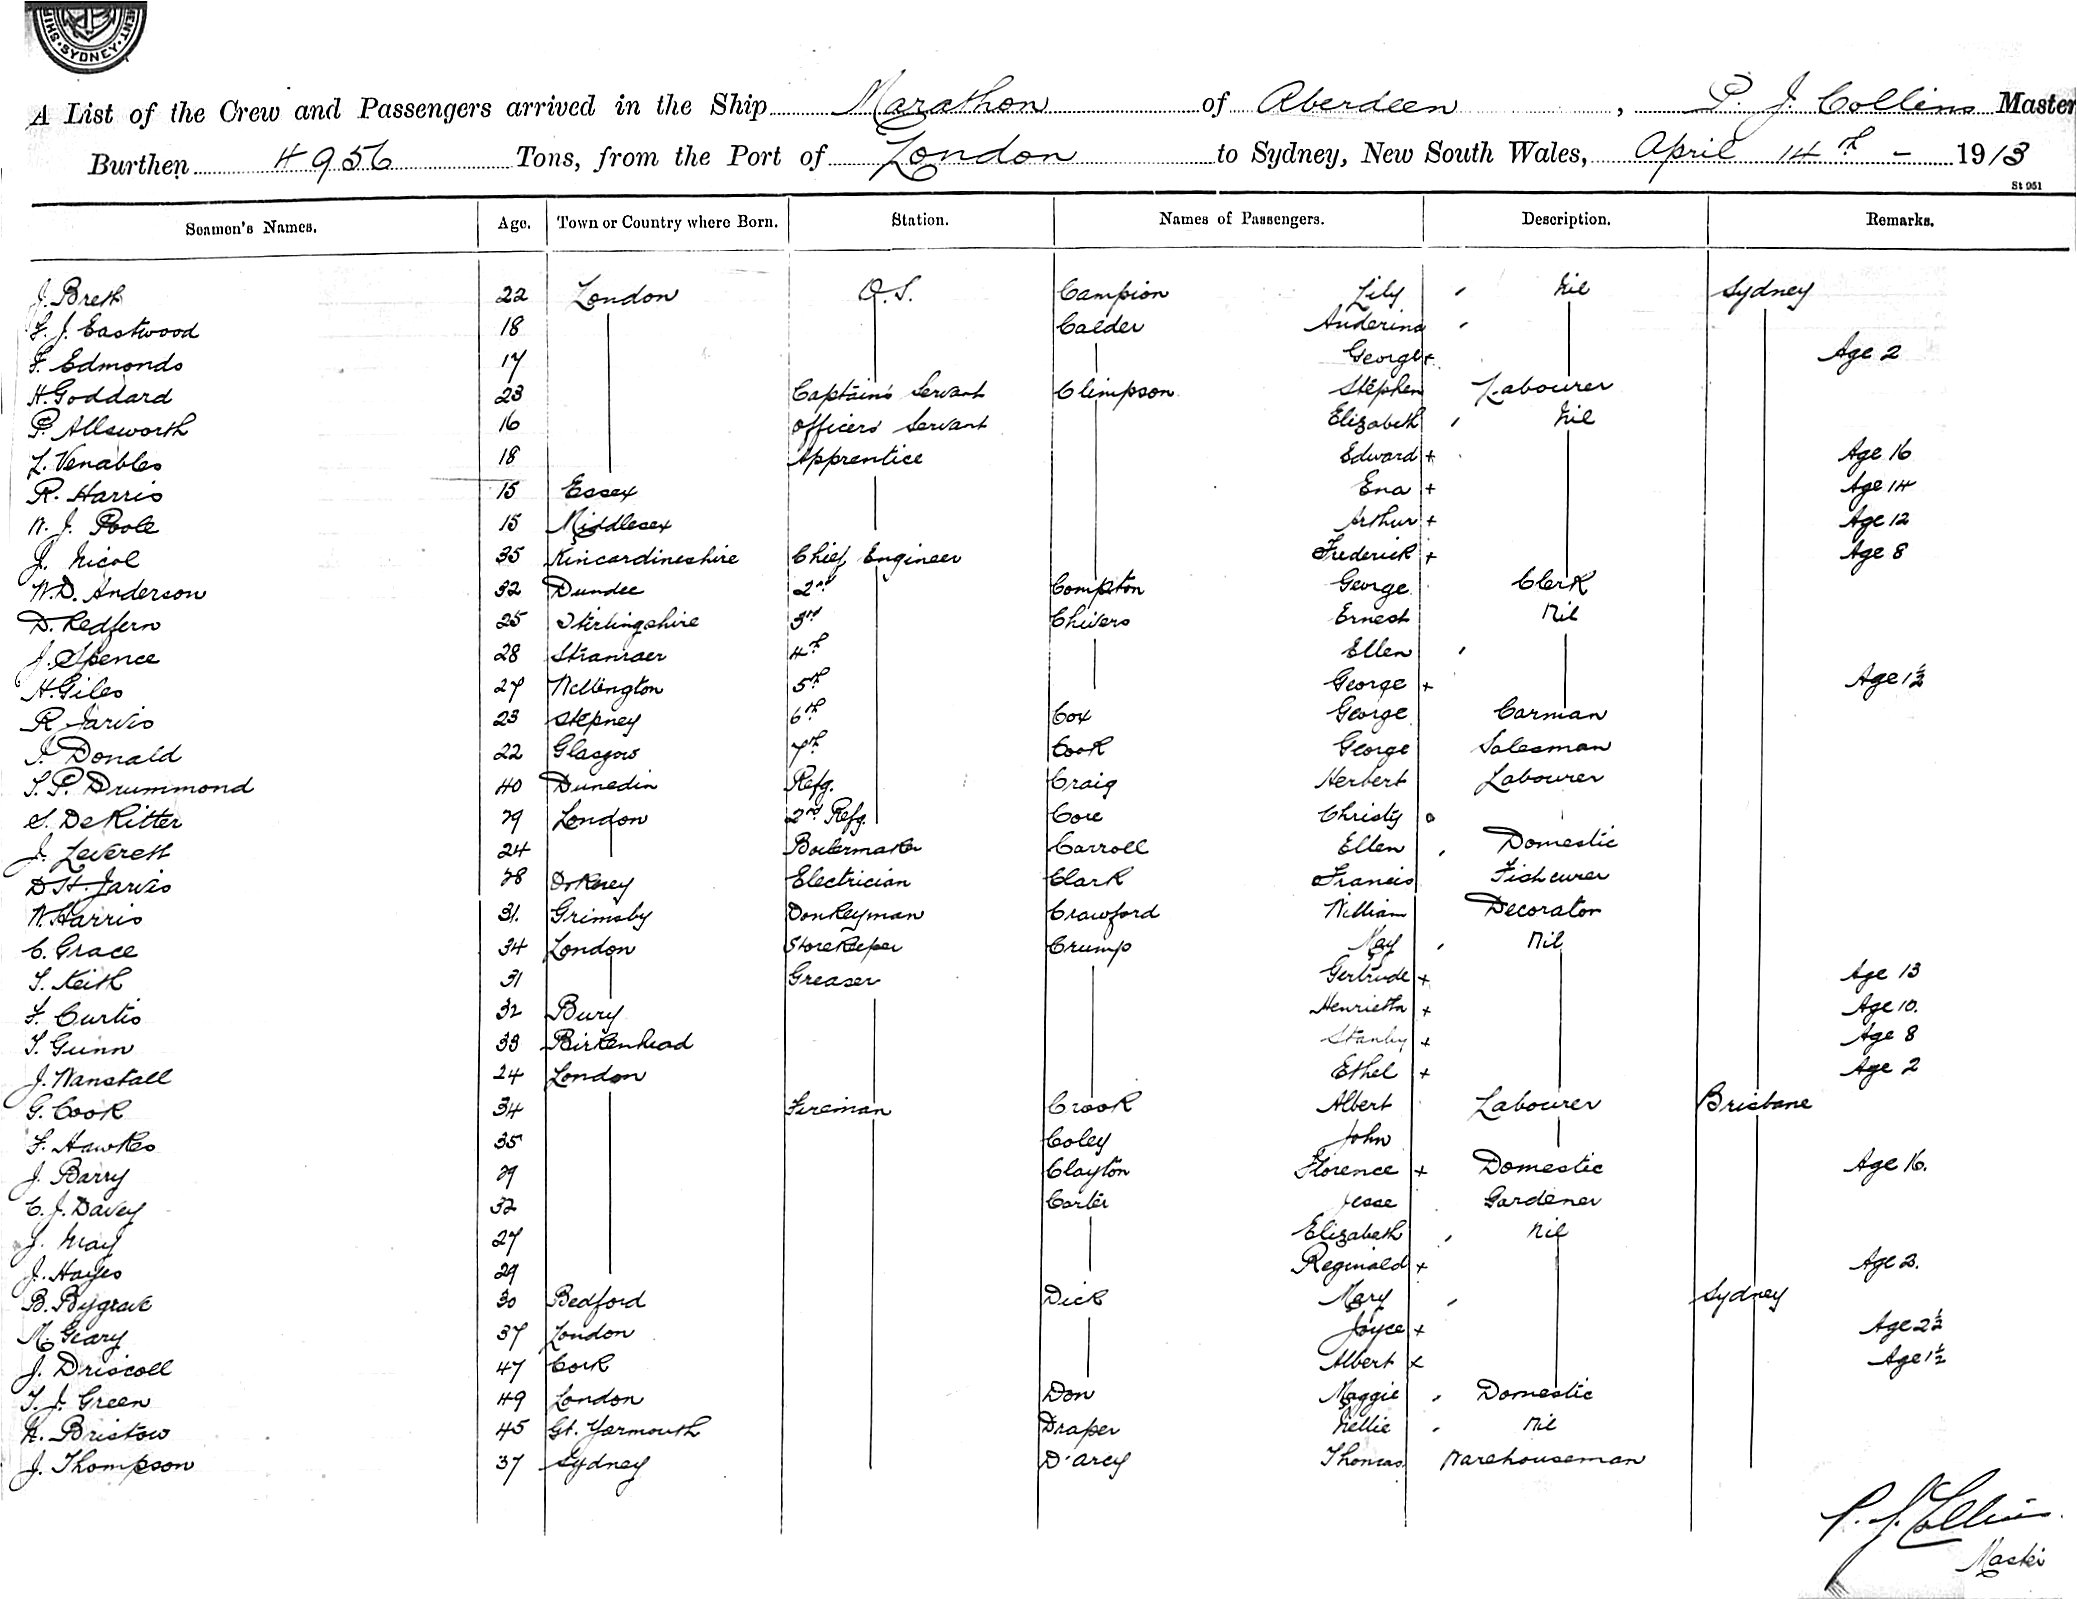 SYDNEY
A List of the Crew and Passengers arrived in the Ship Marathon of Aberdeen, P. J. Collins Master
Burthen 4956 Tons, from the Port of London to Sydney, New South Wales, April 14th - 1913
St 951
Seamen's Names. Age. Town or Country where Born. Station. Names of Passengers. Description. Remarks.
J. Breth 22 London O.S. Campion Lily Nil Sydney
F. J. Eastwood 18 Calder Anderina
F. Edmonds 17 George + Age 2
H. Goddard 23 Captains Servant Climpson Stephen Labourer
P. Allsworth 16 Officers' Servant Elizabeth Nil
L. Venables 18 Apprentice Edward + Age 16
R. Harris 15 Essex Ena + Age 14
W. J. Poole 15 Middlesex Arthur + Age 12
J. Nicol 35 Kincardineshire Chief Engineer Frederick + Age 8
W. D. Anderson 32 Dundee 2nd Compton George Clerk
D. Redfern 25 Stirlingshire 3rd Chivers Ernest Nil
J. Spence 28 Stranraer 4th Ellen
H. Giles 27 Wellington 5th George + Age 1½
R. Jarvis 23 Stepney 6th Cox George Carman
J. Donald 22 Glasgow 7th Cook George Salesman
T. P. Drummond 40 Dunedin Refg. Craig Herbert Labourer
S. De Ritter 29 London 2nd Refg. Core Christy o
J. Leverett 24 Boilermaker Carroll Ellen Domestic
D. H. Jarvis 28 Orkney Electrician Clark Francis Fishcurer
W. Harris 31 Grimsby Donkeyman Crawford William Decorator
C. Grace 34 London Storekeeper Crump May Nil
T. Keith 31 Greaser Gertrude + Age 13
F. Curtis 32 Bury Henrietta + Age 10.
T. Gunn 33 Birkenhead Stanley + Age 8
J. Wanstall 24 London Ethel + Age 2
G. Cook 34 Fireman Crook Albert Labourer Brisbane
F. Hawkes 35 Coley John
J. Barry 29 Clayton Florence + Domestic Age 16.
C. J. Davey 32 Carter Jesse Gardener
J. May 27 Elizabeth Nil
J. Hayes 29 Reginald + Age 3.
B. Bygrave 30 Bedford Dick Mary Sydney
M. Geary 37 London Joyce + Age 2½
J. Driscoll 47 Cork Albert + Age 1½
T. J. Green 49 London Don Maggie Domestic
W. Bristow 45 Gt. Yarmouth Draper Nellie Nil
J. Thompson 37 Sydney D'arcy Thomas Warehouseman
P. J. Collins
Master